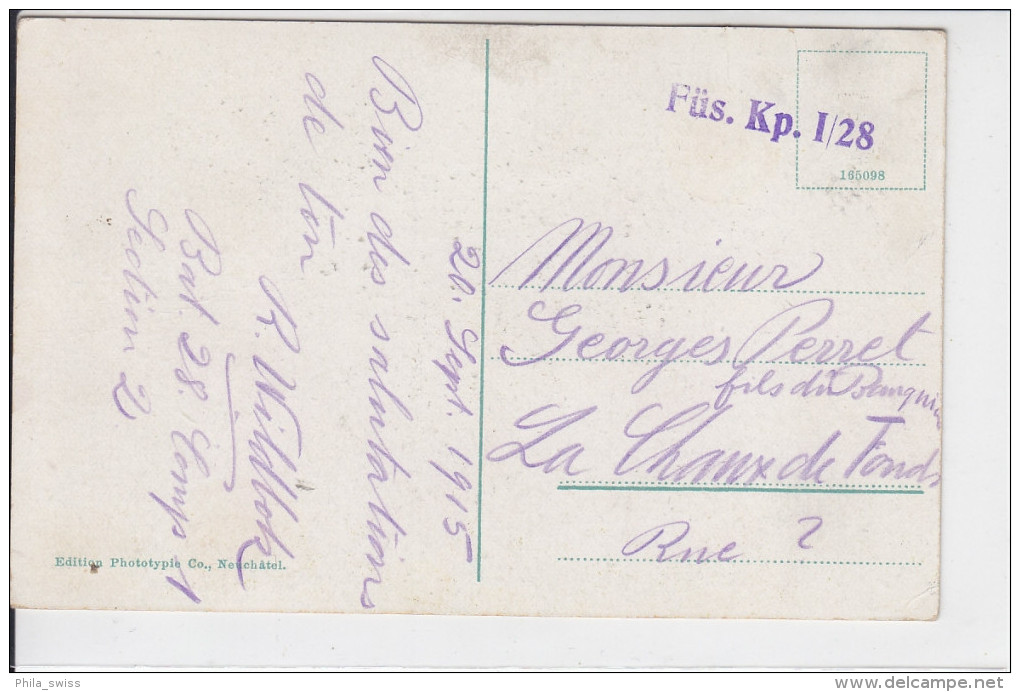 Füs. Kp. I/28
165098
20. Sept. 1915
Bien des salutations
de ton
R. Wildbolz
Bat. 28. Comp 1
Section 2
Monsieur
Georges Perret
fils du Banquier
La Chaux de Fonds
Rue ?
Edition Phototypie Co., Neuchâtel.
Phila_swiss
www.delcampe.net